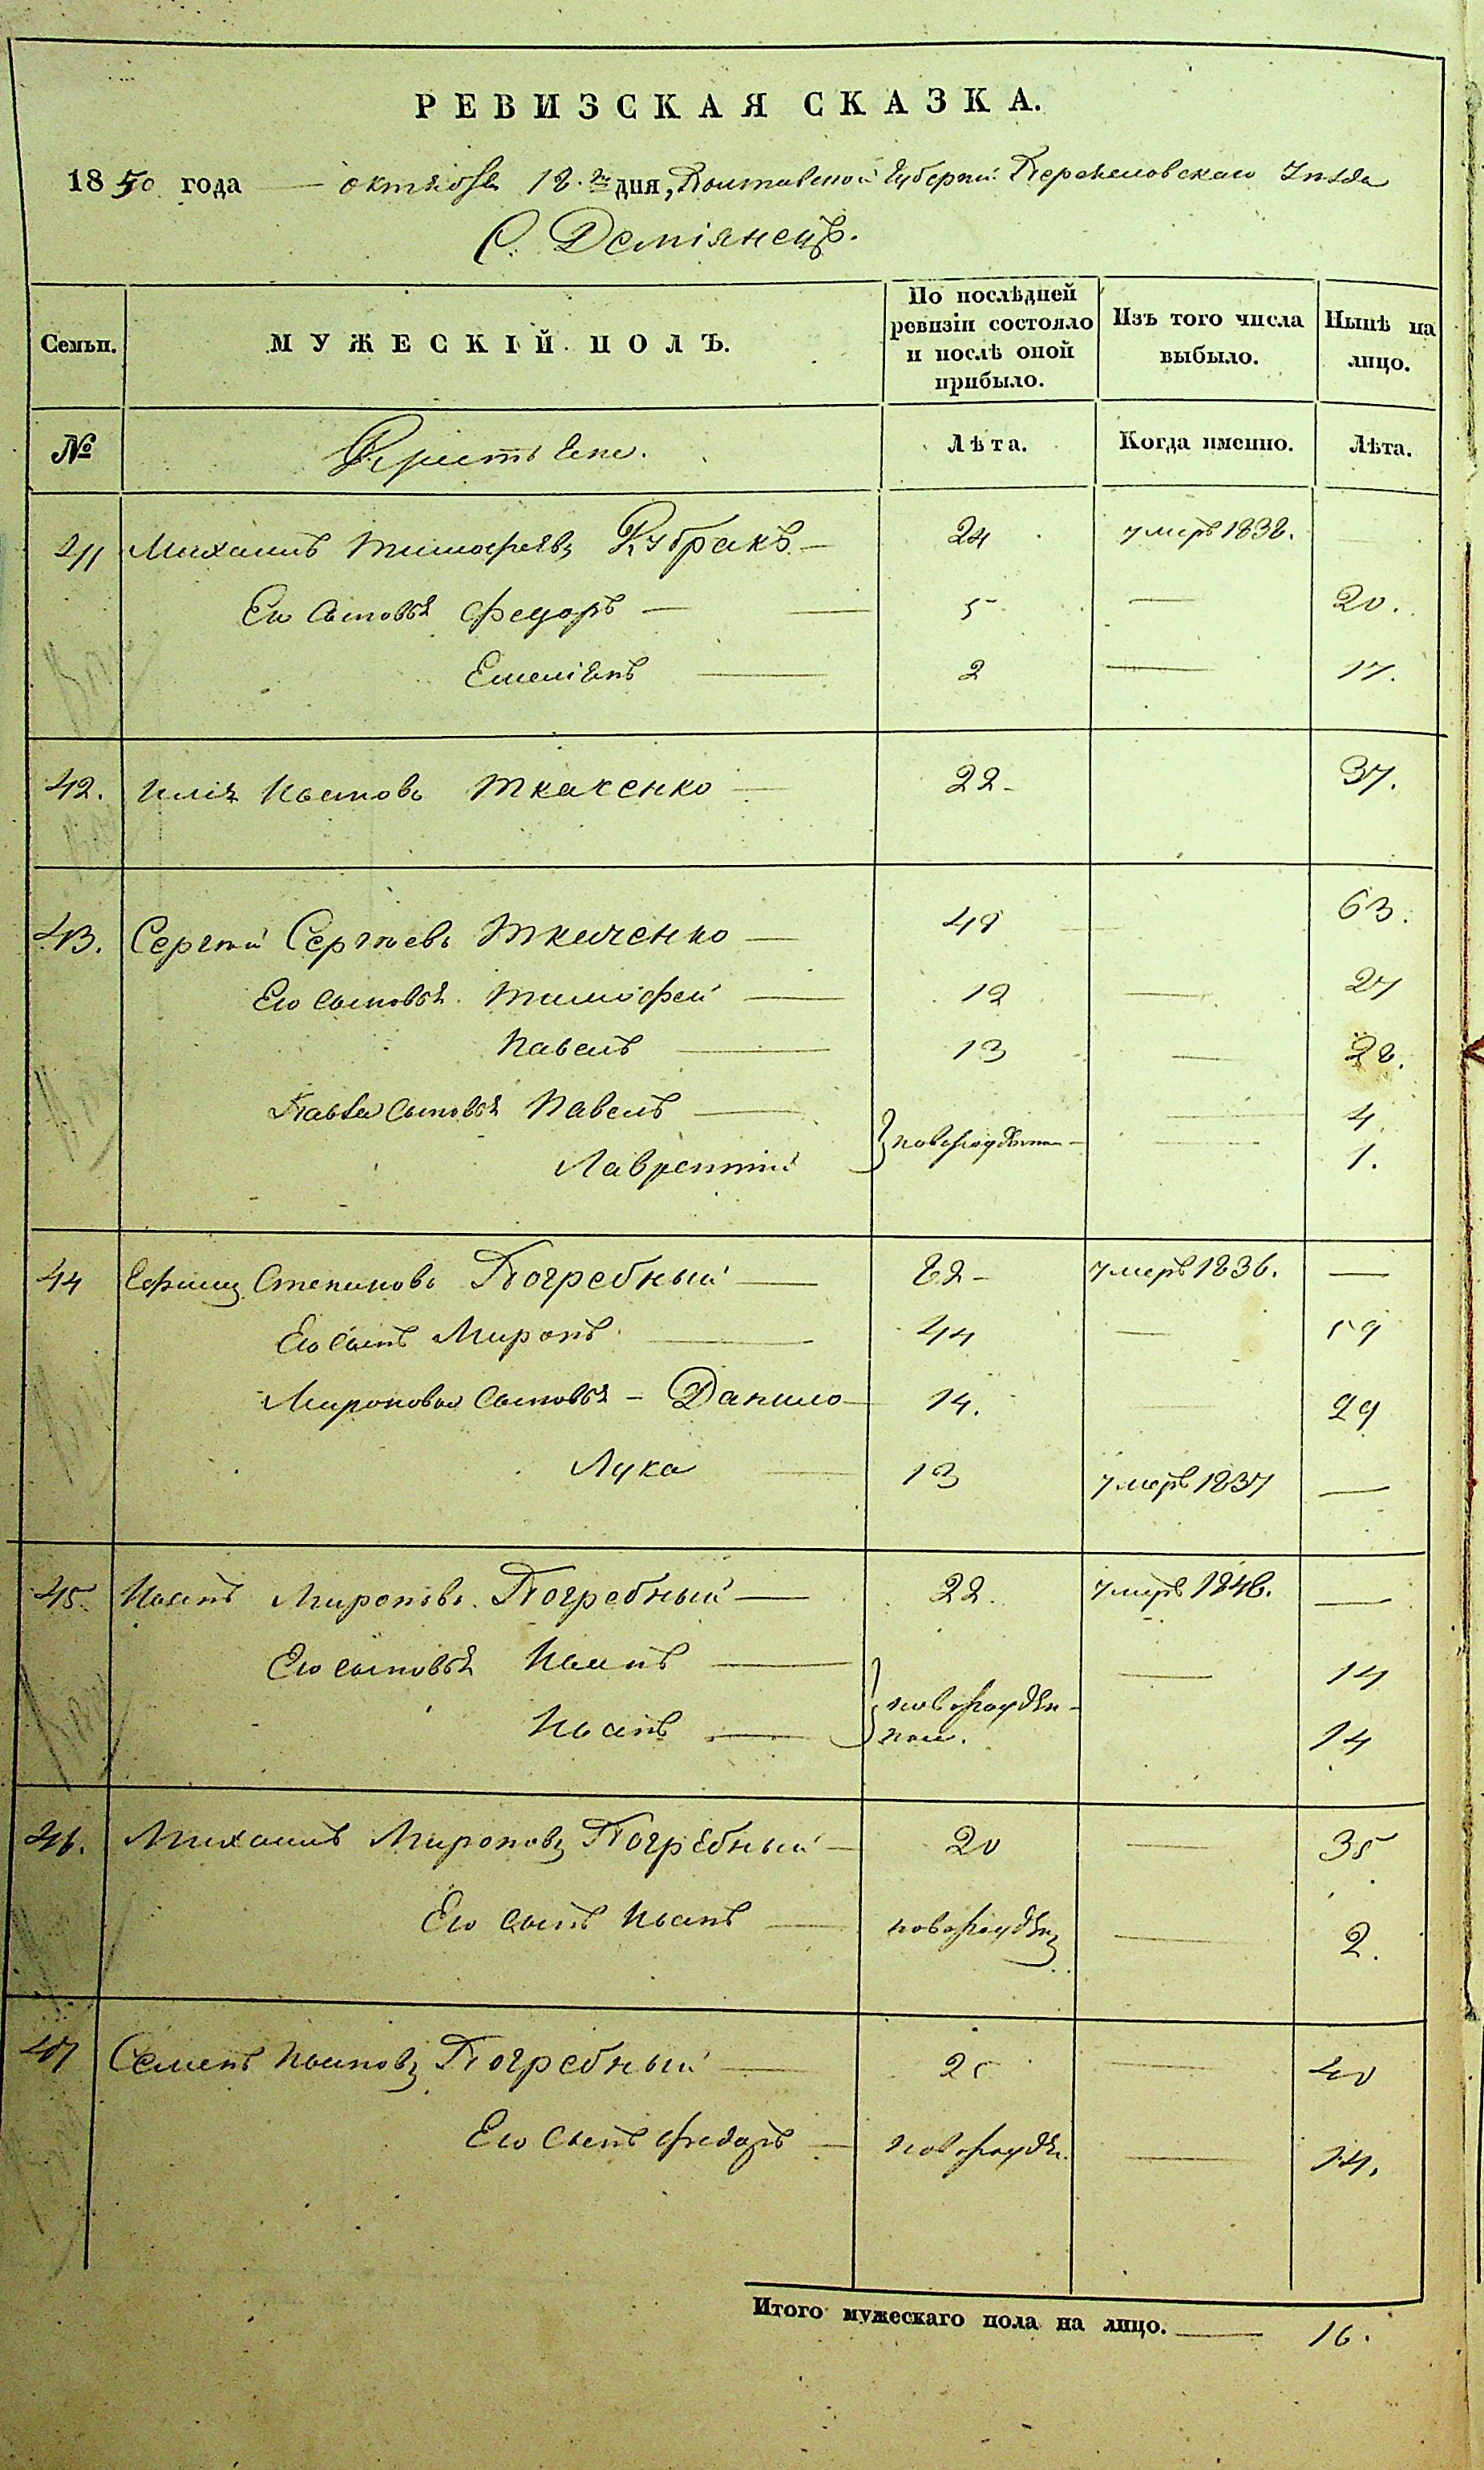 РЕВИЗСКАЯ СКАЗКА.
1850 года — октября 18.го дня, Полтавской Губернии Переяславскаго Уезда
С. Демiянецъ.
Семьи. МУЖЕСКІЙ ПОЛЪ. По послѣдней ревизіи состояло и послѣ оной прибыло. Изъ того числа выбыло. Нынѣ на лицо.
№ Лѣта. Когда именно. Лѣта.
41 Михаилъ Тимофѣевъ Кубракъ — 24 умеръ 1838.
Его сыновья Федоръ — 5 — 20.
Емеліянъ — 2 — 17.
42. Илія Ивановъ Ткаченко — 22 37.
43. Сергѣй Сергѣевъ Ткаченко — 48 63.
Его сыновья Тимофей — 12 — 27
Павелъ — 13 — 28.
Павла сыновья Павелъ — 4
Лаврентій } новорожденные — 1.
44 Ефимъ Степановъ Погребный — 82 умеръ 1836. —
Его сынъ Миронъ — 44 — 59
Мироновы сыновья — Данило — 14. 29
Лука — 13 умеръ 1837 —
45. Иванъ Мироновъ Погребный — 22. умеръ 1846. —
Его сыновья Иванъ — } новорожден- — 14
Иванъ — ные. 14
46. Михаилъ Мироновъ Погребный — 20 — 35
Его сынъ Иванъ — новорожденъ — 2.
47 Семенъ Ивановъ Погребный — 25 — 40
Его сынъ Федоръ — новорожден. — 14.
Итого мужескаго пола на лицо. — 16.